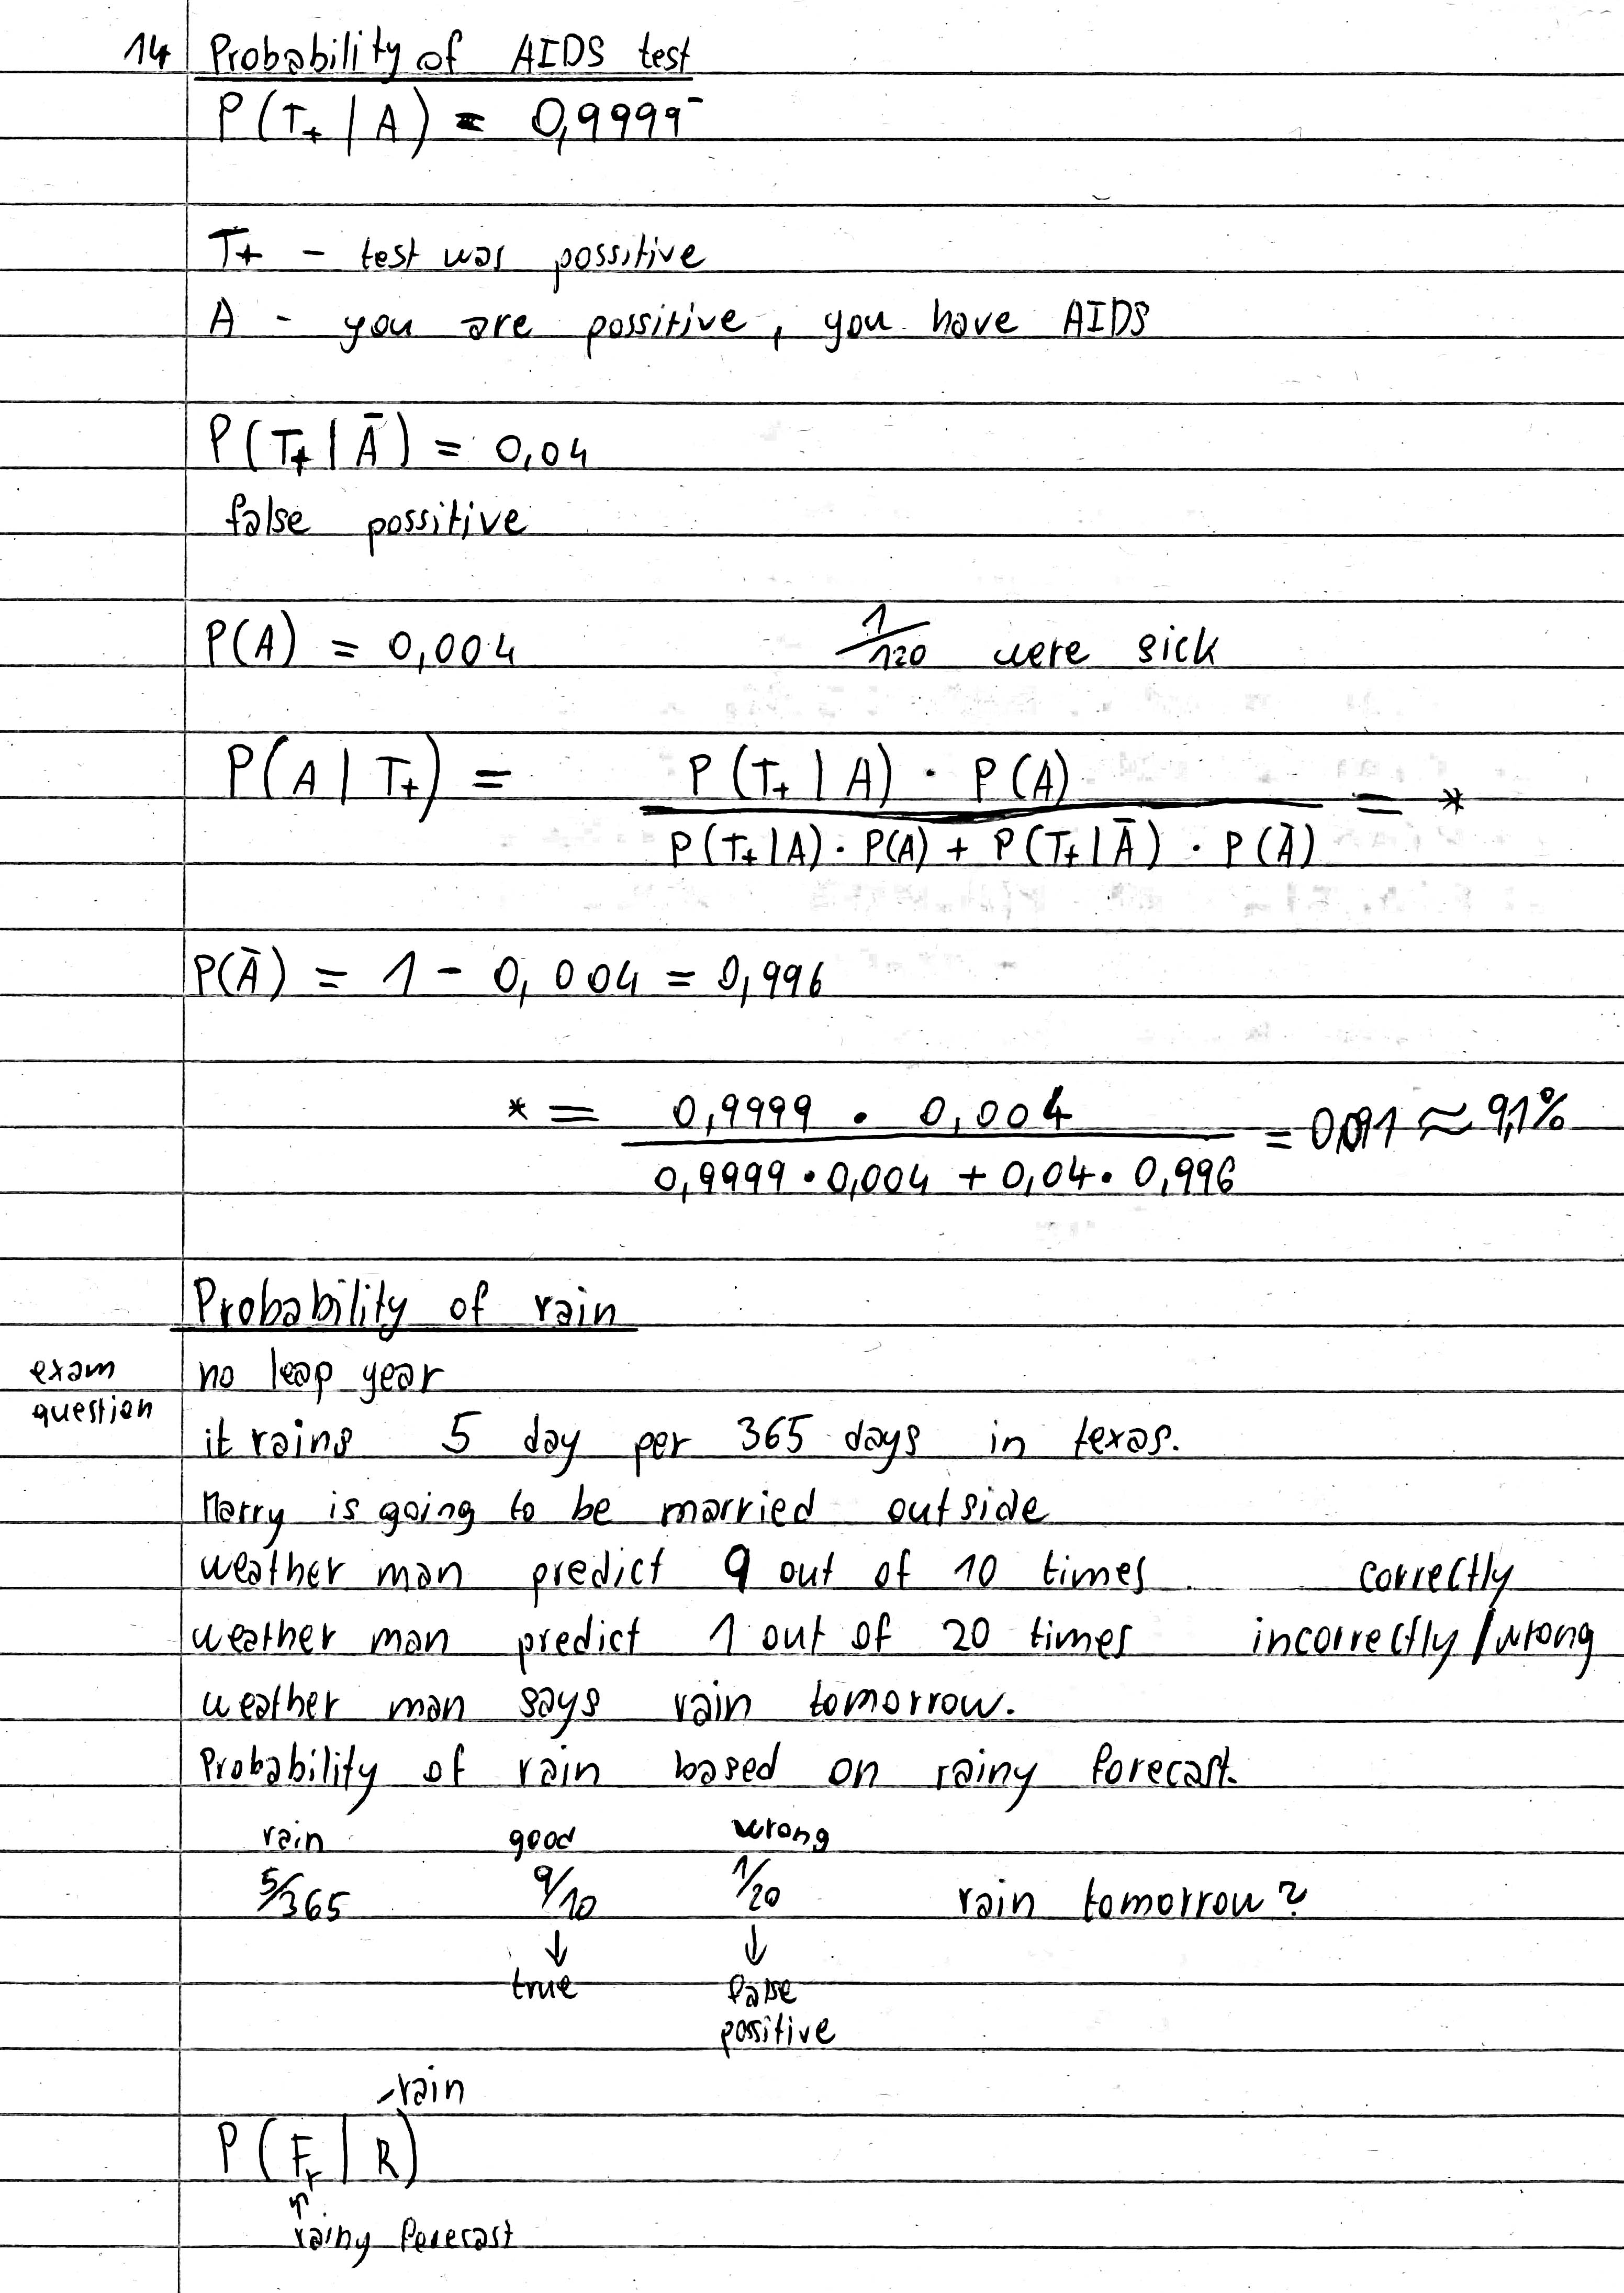 14 Probability of AIDS test
P(T+ | A) = 0,9999
T+ - test was possitive
A - you are possitive, you have AIDS
P(T+ | Ā) = 0,04
false possitive
P(A) = 0,004 1/120 were sick
P(A | T+) = P(T+ | A) · P(A) / P(T+ | A) · P(A) + P(T+ | Ā) · P(Ā) = *
P(Ā) = 1 - 0,004 = 0,996
* = 0,9999 · 0,004 / 0,9999 · 0,004 + 0,04 · 0,996 = 0,091 ≈ 9,1%
Probability of rain
exam question
no leap year
it rains 5 day per 365 days in texas.
Marry is going to be married outside
weather man predict 9 out of 10 times correctly
weather man predict 1 out of 20 times incorrectly/wrong
weather man says rain tomorrow.
Probability of rain based on rainy forecast.
rain good wrong
5/365 9/10 1/20 rain tomorrow?
↓ ↓
true false
possitive
rain
P(Fr | R)
↑
rainy forecast